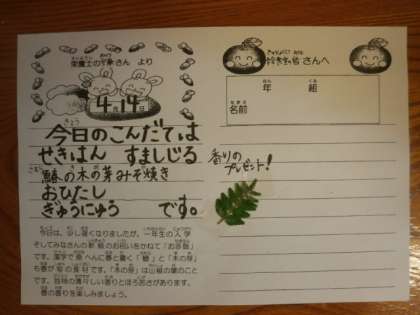 栄養士の
さん より
4月14日
きょう
今日のこんだては
せきはん すましじる
鰆の木の芽みそ焼き
おひたし
ぎゅうにゅう です。
今日は、少し遅くなりましたが、一年生の入学
そしてみなさんの進級のお祝いをかねて「お赤飯」
です。漢字で魚へんに春と書く「鰆」と「木の芽」
も春が旬の食材です。「木の芽」は山椒の葉のこと
です。独特の清々しい香りとほろ苦さがあります。
春の香りを楽しみましょう。
さんへ
年 組
名前
香りの
プレゼント!